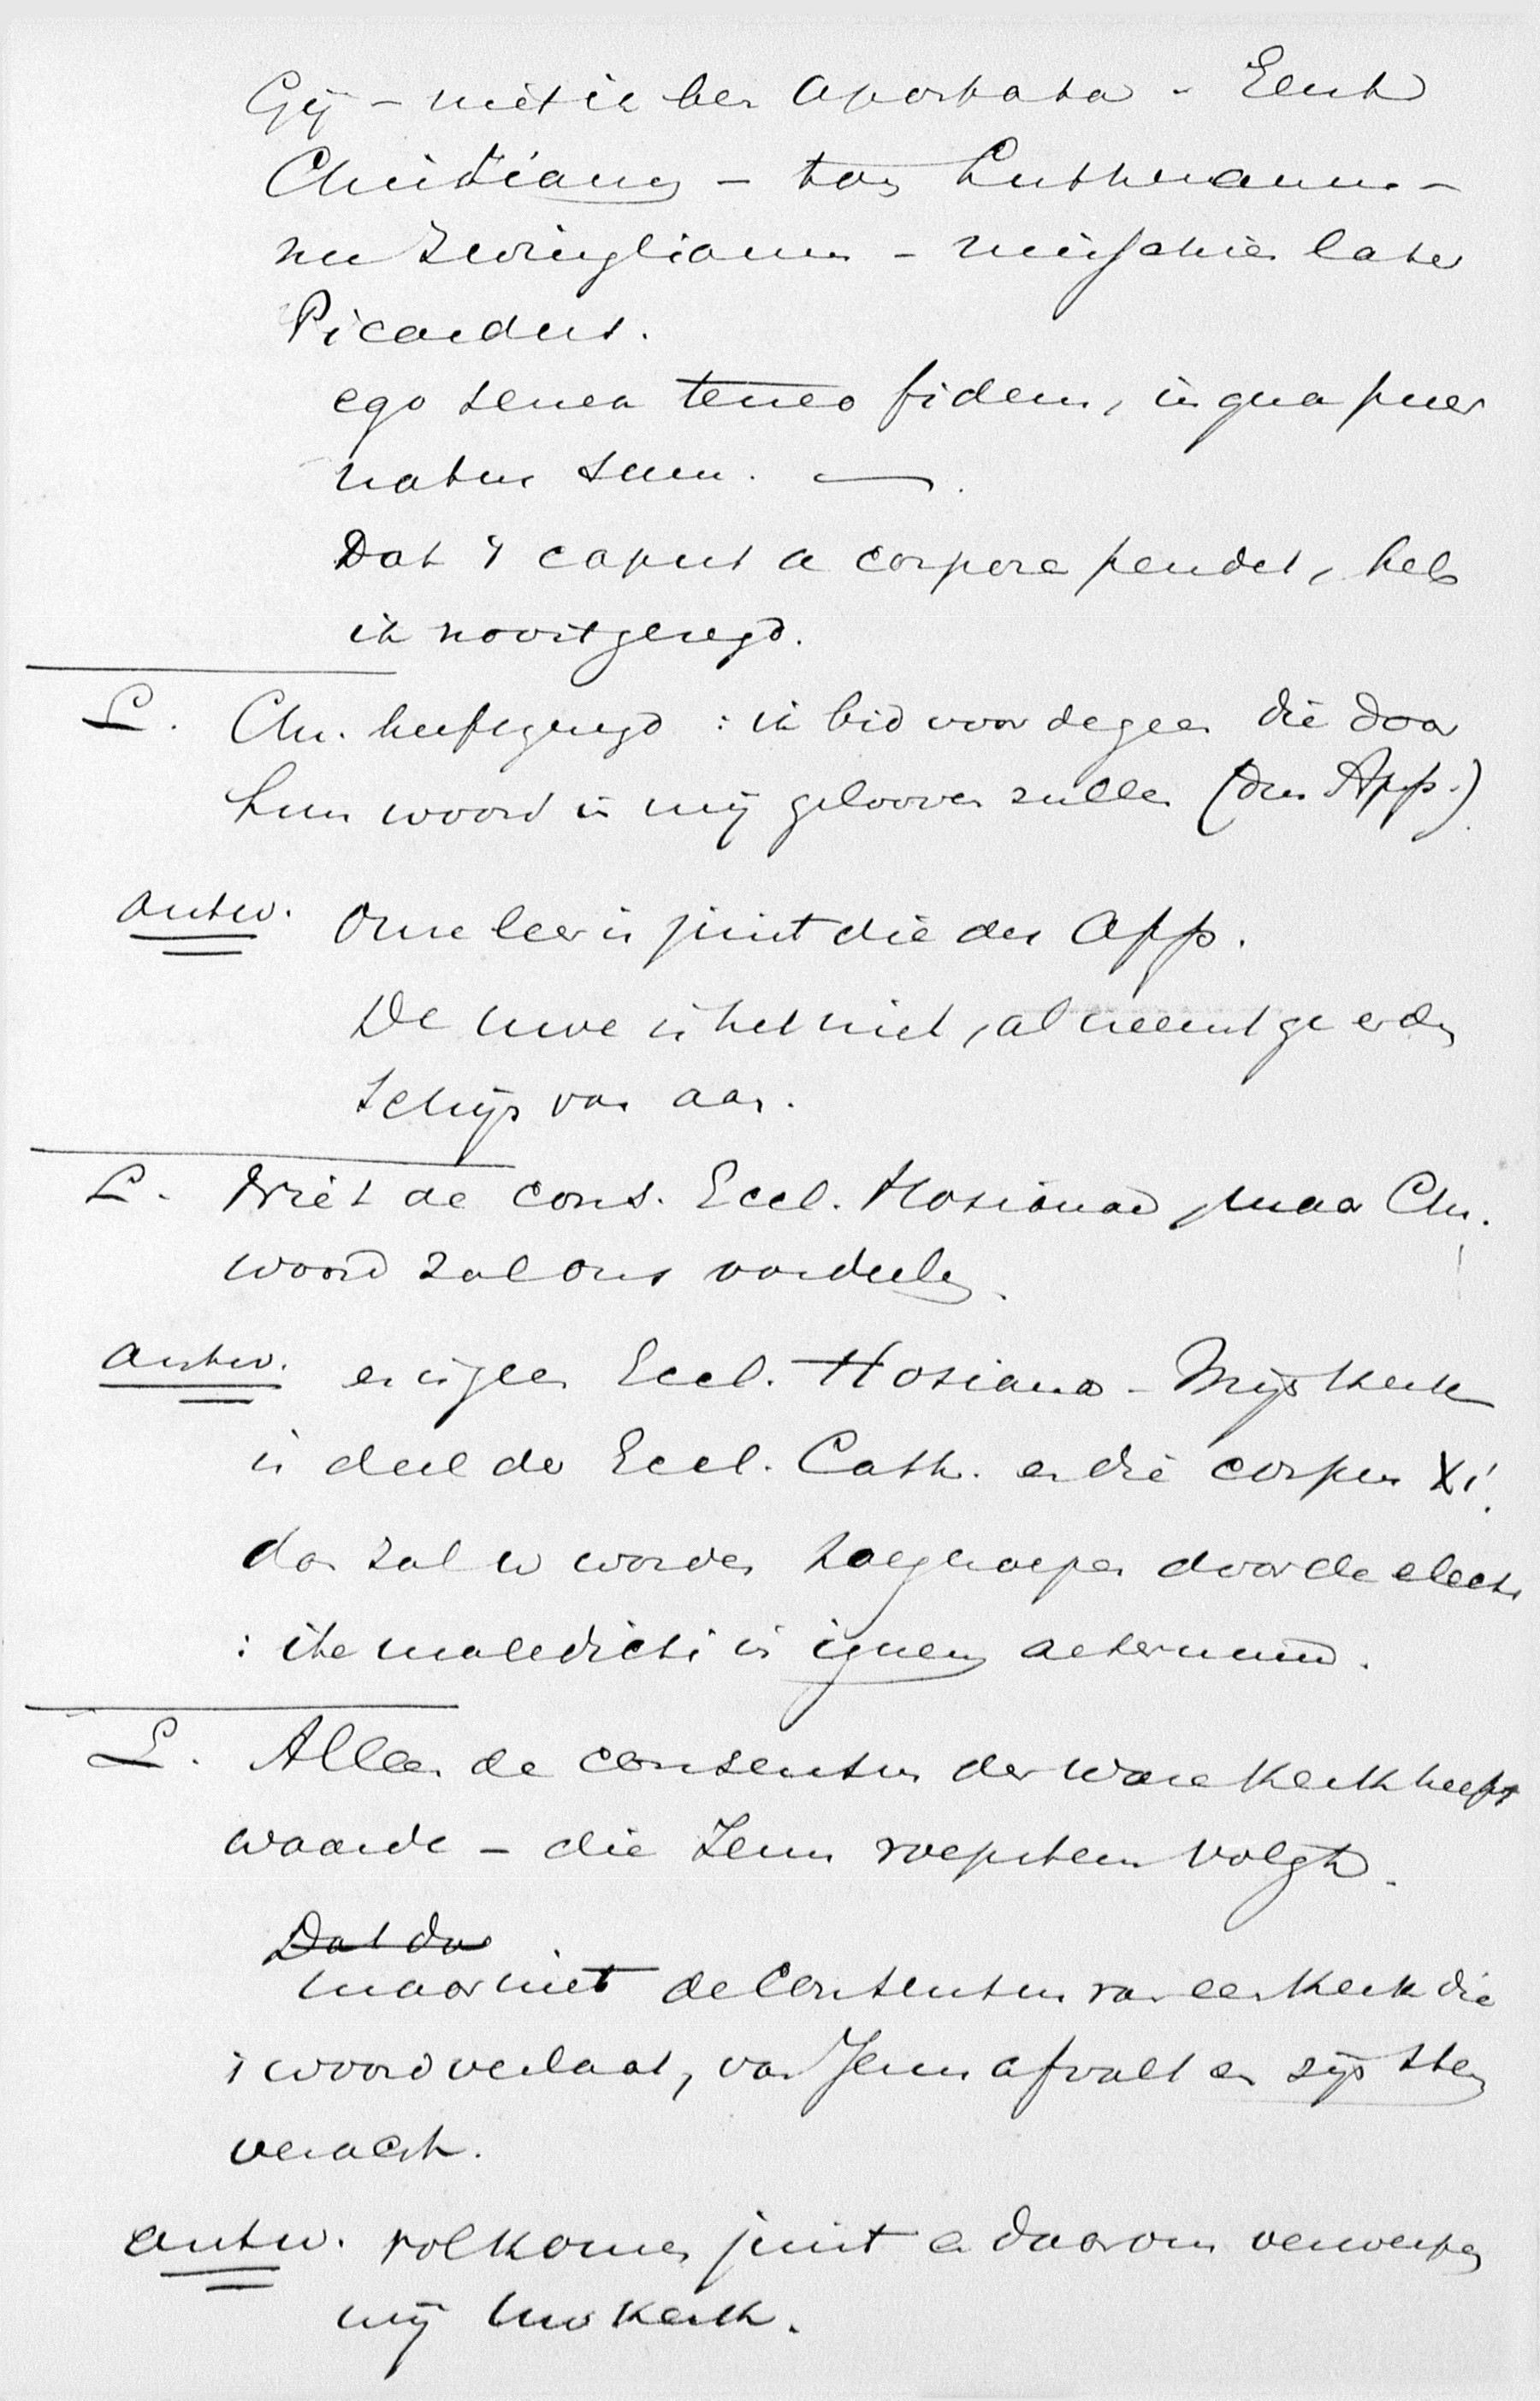 Gij – niet ik ben apostata – Eerst
Christianus – toen Lutheranus –
nu Zwinglianus – misschien later
Picardus.
ego senex teneo fidem, in qua puer
natus sum. —.
Dat 't caput a corpore pendet, heb
ik nooit gezegd.
L. Chr. heeft gezegd : ik bid voor degeen die door
hun woord in mij gelooven zullen (der App.)
antw. Onze leer is juist die der App.
De uwe is het niet, al neemt ge er den
schijn van aan.
L. Niet de cons. Eccl. Hosianae, maar Chr.
woord zal ons oordeelen.
antw. er is geen Eccl. Hosiana – Mijn kerk
is deel der Eccl. Cath. en die corpus Xi.
dan zal u worden toegeroepen door de electi
: ite maledicti in ignem aeternum.
L. Alleen de consensus der ware Kerk heeft
waarde – die Jezus roepstem volgt.
Dat doe
maar niet de consensus van een Kerk die
't woord verlaat, van Jezus afvalt en zijn stem
veracht.
antw. volkomen juist en daarom verwerpen
wij Uw kerk.